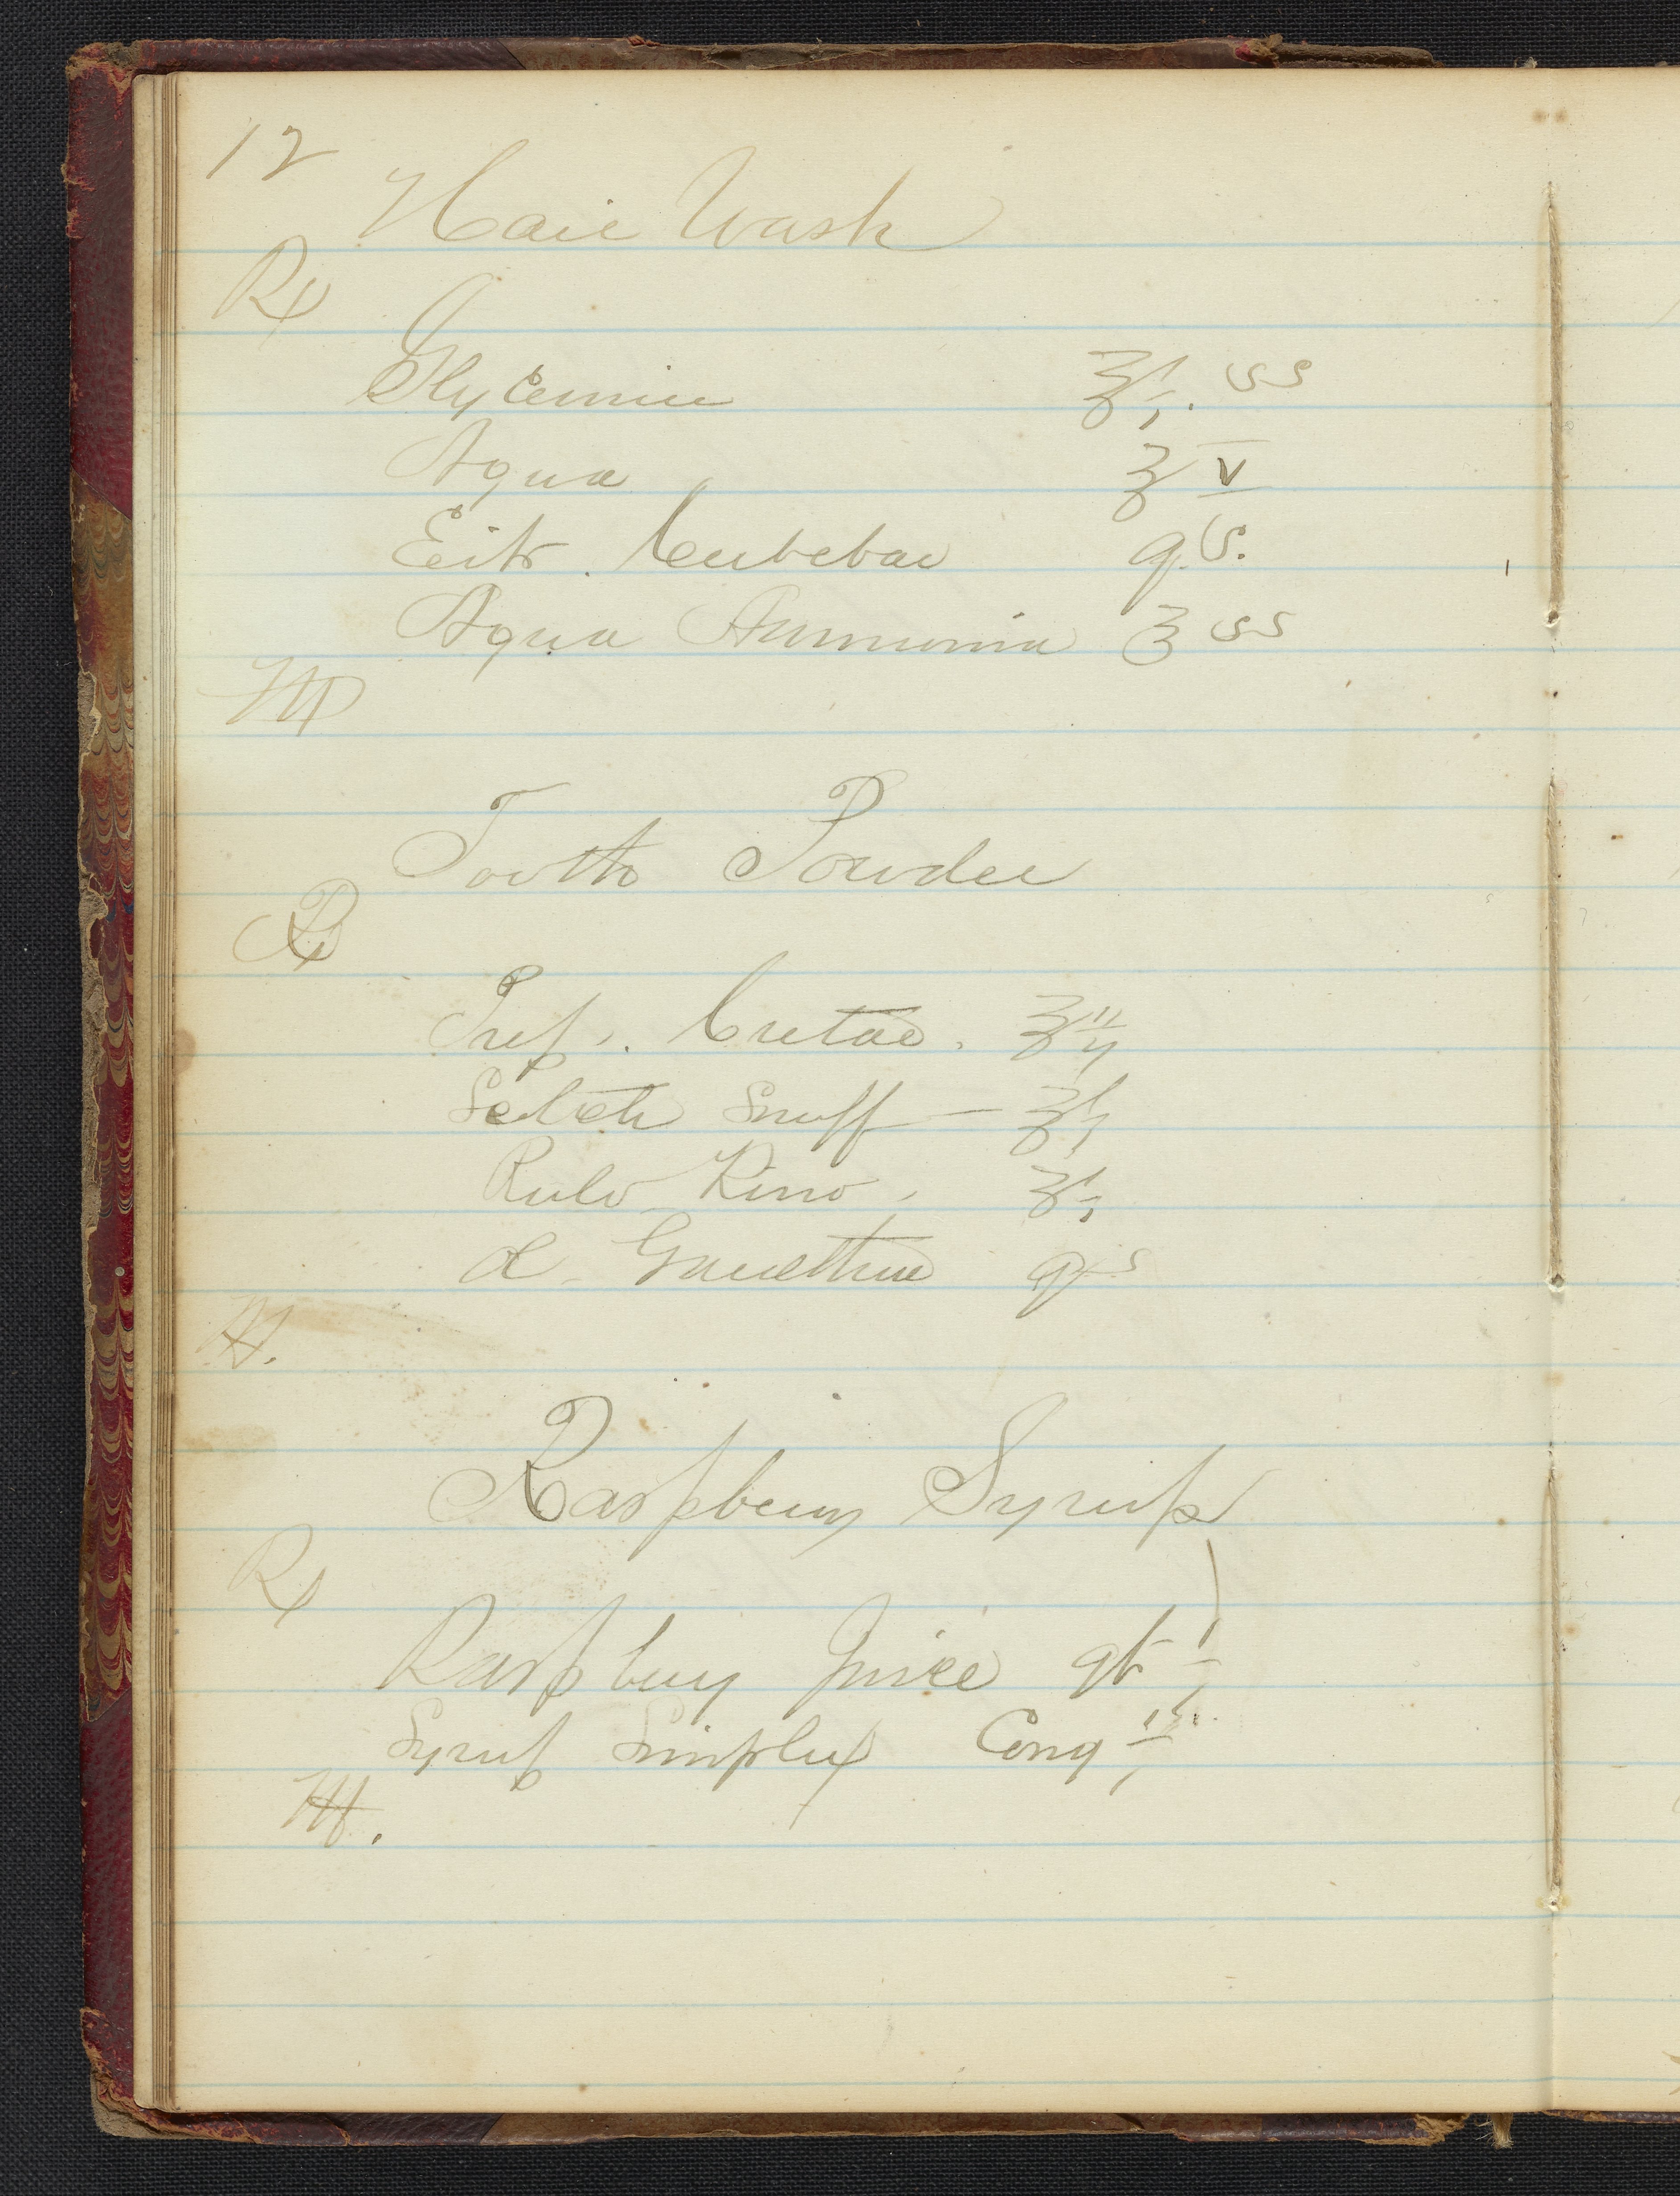 12
Hair Wash
Rx
Glycerine ℥i. ss
Aqua ℥ V
Citr. Cubebae q.s.
Aqua Ammonia ʒ ss
M
Tooth Powder
Rx
Prep. Cretae. ℥ii
Scotch Snuff — ℥i
Pulv Kino. ℥i
Ol Gaultheria qs
M.
Raspberry Syrup
Rx
Raspberry Juice qt i
Syrup Simplex Cong
M.